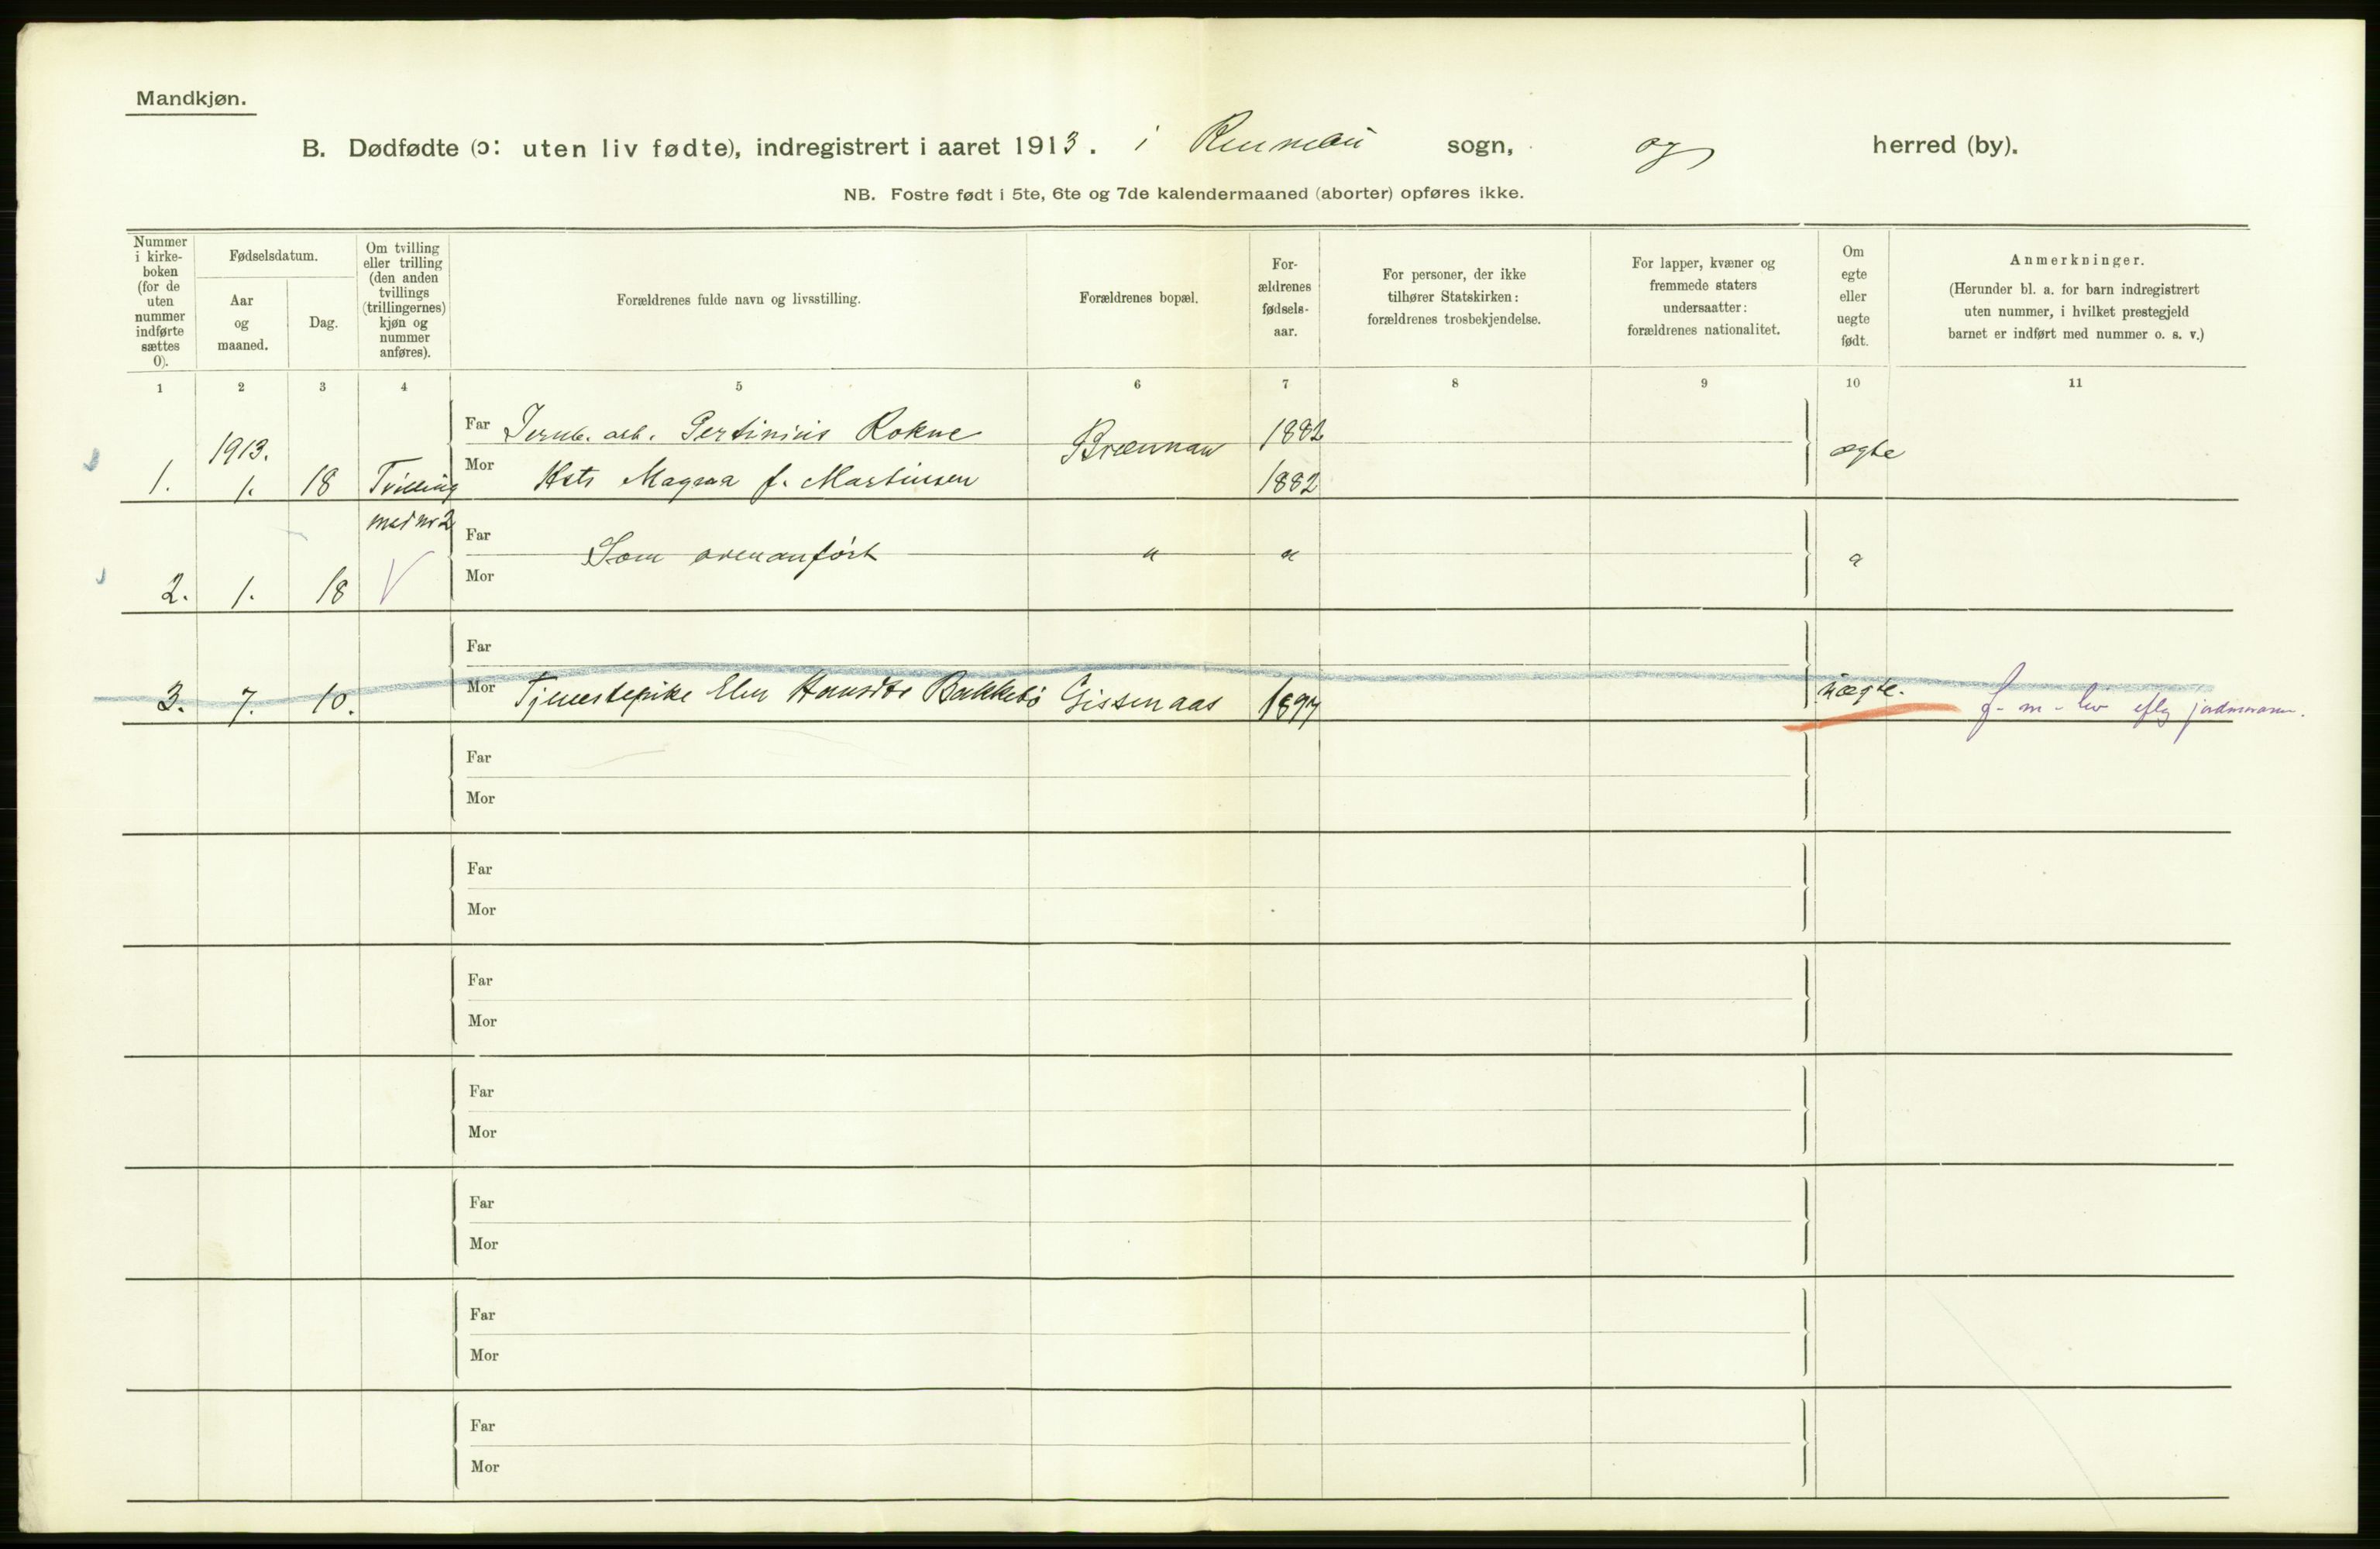 Mandkjøn.
B. Dødfødte (ɔ: uten liv fødte), indregistrert i aaret 1913. i sogn, og herred (by).
NB. Fostre født i 5te, 6te og 7de kalendermaaned (aborter) opføres ikke.
Nummer
i kirke-
boken
(for de
uten
nummer
indførte
sættes
0).
Fødselsdatum.
Aar
og
maaned.
Dag.
Om tvilling
eller trilling
(den anden
tvillings
(trillingernes)
kjøn og
nummer
anføres).
Forældrenes fulde navn og livsstilling.
Forældrenes bopæl.
For-
ældrenes
fødsels-
aar.
For personer, der ikke
tilhører Statskirken:
forældrenes trosbekjendelse.
For lapper, kvæner og
fremmede staters
undersaatter:
forældrenes nationalitet.
Om
egte
eller
uegte
født.
Anmerkninger.
(Herunder bl. a. for barn indregistrert
uten nummer, i hvilket prestegjeld
barnet er indført med nummer o. s. v.)
1 2 3 4 5 6 7 8 9 10 11
Far Jernb. arb. Pertinius Rokne Brænnan 1882
1913.
1. 1. 18 Tvilling Mor Hstr Magna f. Martinsen 1882 ægte
med nr 2
Far
Som ovenanført " " "
Mor
2. 1. 18 V
Far
3. 7. 10. Mor Tjenestepike Elen Hansdtr Bakkebø Gissenaas 1897 uægte. f. m. liv jordmoren.
Far
Mor
Far
Mor
Far
Mor
Far
Mor
Far
Mor
Far
Mor
Far
Mor